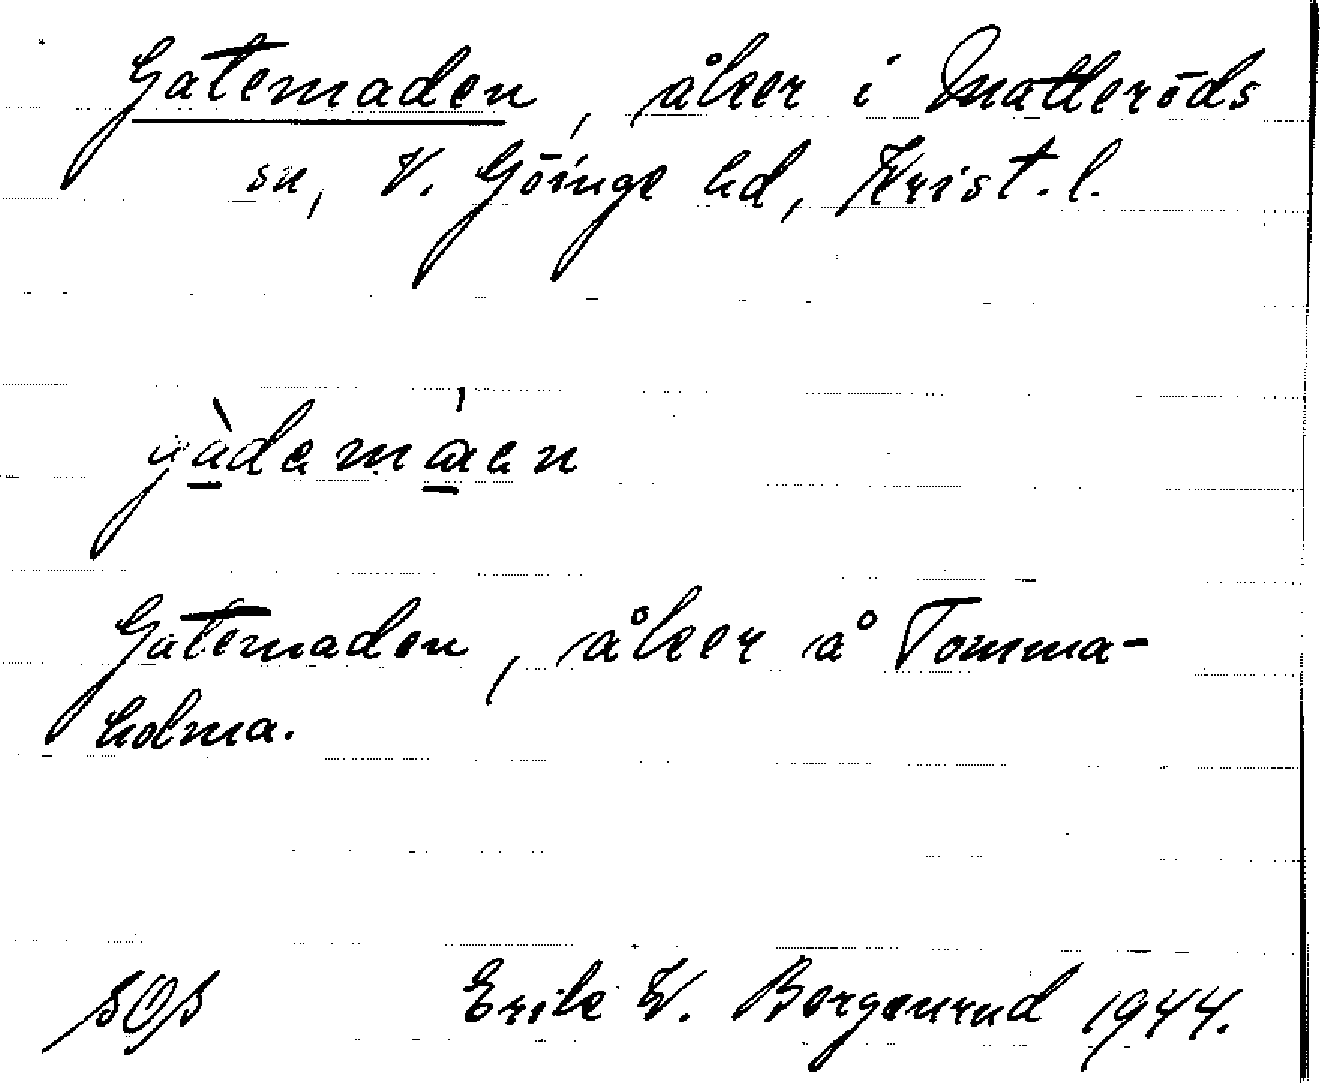 Gatemaden, åker i Matteröds
sn, V. Göinge hd, Krist. l.
Gatemaden, åker å Tomma-
holma.
Erik W. 1944.